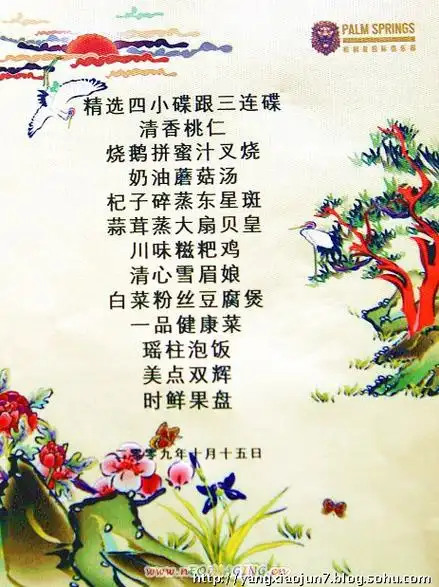 PALM SPRINGS
棕榈泉国际俱乐部
精选四小碟跟三连碟
清香桃仁
烧鹅拼蜜汁叉烧
奶油蘑菇汤
杞子碎蒸东星斑
蒜茸蒸大扇贝皇
川味糍粑鸡
清心雪眉娘
白菜粉丝豆腐煲
一品健康菜
瑶柱泡饭
美点双辉
时鲜果盘
二零零九年十月十五日
http://yangxiaojun7.blog.sohu.com